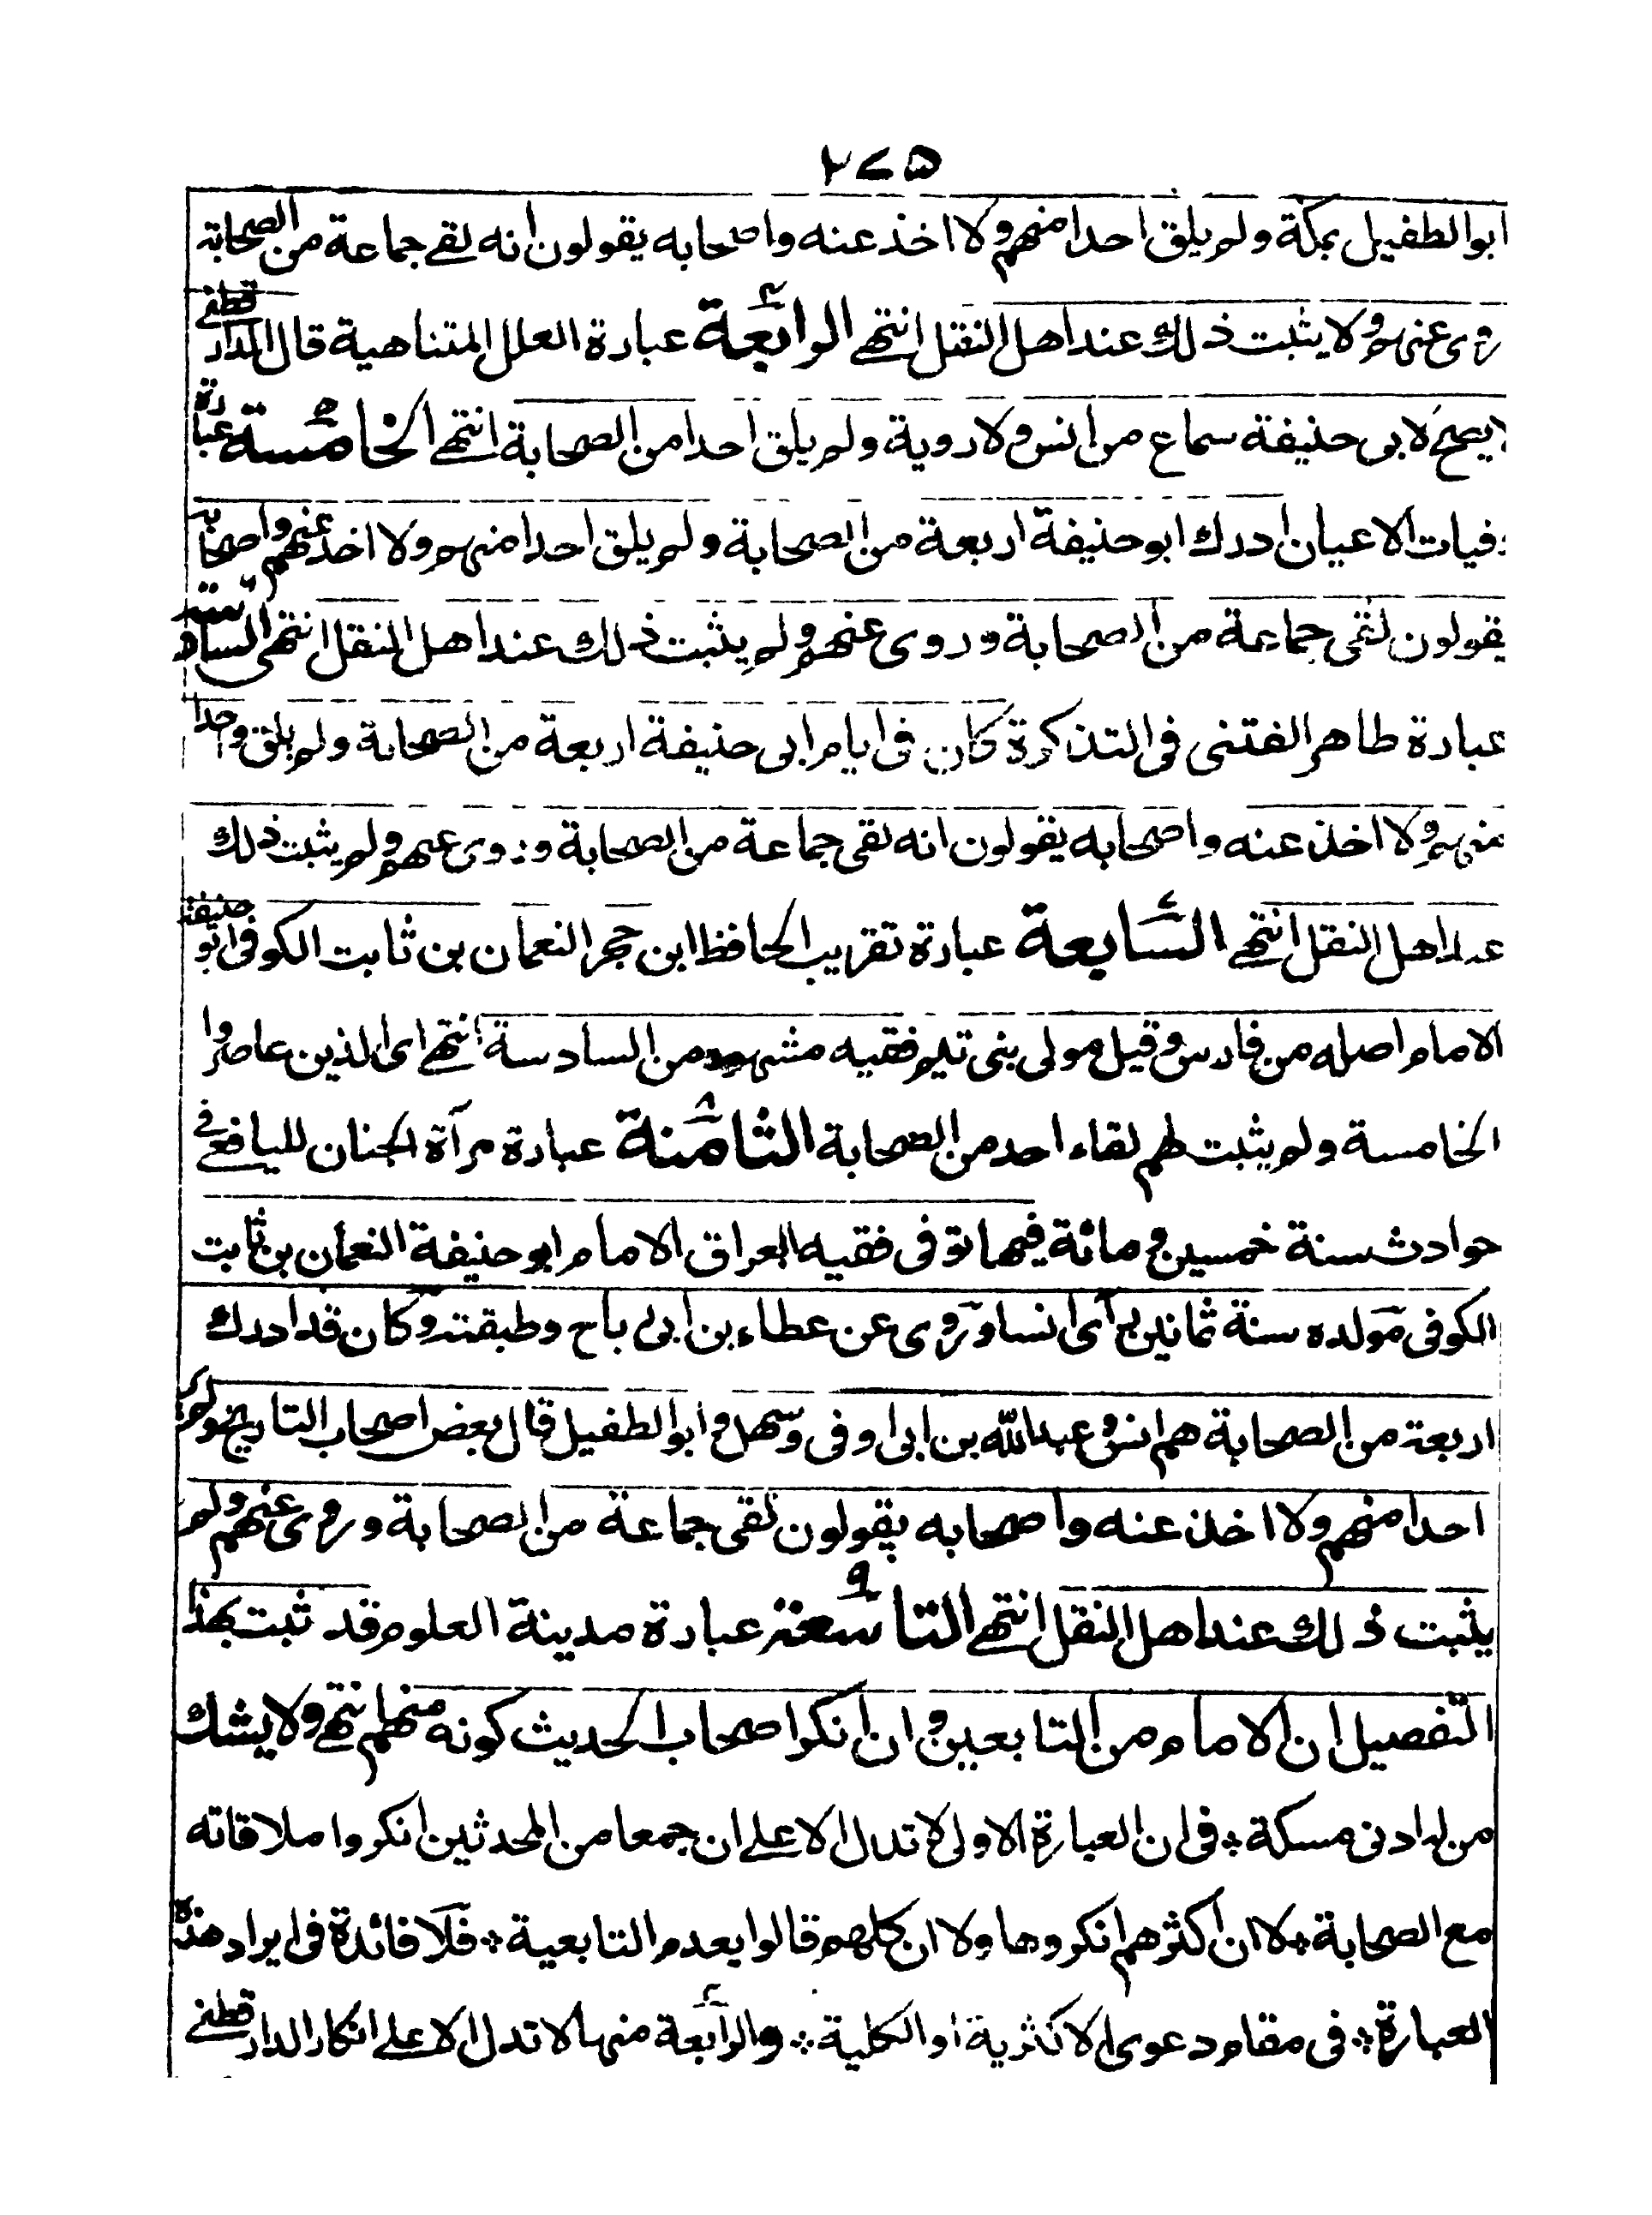 ۲۷۵
ابو الطفيل بمكة ولم يلق احدا منهم ولا اخذ عنه واصحابه يقولون انه لقے جماعة من الصحابة
وروى عنهم ولا يثبت ذلك عند اهل النقل انتهے الرابعة ۴ عبارة العلل المتناهية قال الدارقطنے
لا يصح لابى حنيفة سماع من انس ولا روية ولم يلق احدا من الصحابة انتهے الخامسة ۵ عبارة
وفيات الاعيان ادرك ابو حنيفة اربعة من الصحابة ولم يلق احدا منهم ولا اخذ عنهم واصحابه
يقولون لقى جماعة من الصحابة وروى عنهم ولم يثبت ذلك عند اهل النقل انتهى السادسة ۶
عبارة طاهر الفتنى فى التذكرة كان فى ايام ابى حنيفة اربعة من الصحابة ولم يلق واحدا
منهم ولا اخذ عنه واصحابه يقولون انه لقى جماعة من الصحابة وروى عنهم ولم يثبت ذلك
عند اهل النقل انتهے السابعة ۷ عبارة تقريب الحافظ ابن حجر النعمان بن ثابت الكوفى ابو حنيفة
الامام اصله من فارس وقيل مولى بنى تيم فقيه مشهور من السادسة انتهے اى الذين عاصروا
الخامسة ولم يثبت لهم لقاء احد من الصحابة الثامنة ۸ عبارة مرآة الجنان لليافعے فے
حوادث سنة خمسين و مائة فيها توفى فقيه العراق الامام ابو حنيفة النعمان بن ثابت
الكوفى مولده سنة ثمانين رأى انسا وروى عن عطاء بن ابى رباح وطبقته وكان قد ادرك
اربعة من الصحابة هم انس وعبد الله بن ابى اوفى وسهل و ابو الطفيل قال بعض اصحاب التاريخ ولم ير
احدا منهم ولا اخذ عنه واصحابه يقولون لقى جماعة من الصحابة وروى عنهم ولم
يثبت ذلك عند اهل النقل انتهے التاسعة ۹ عبارة مدينة العلوم قد ثبت بهذا
التفصيل ان الامام من التابعين وان انكر اصحاب الحديث كونه منهم انتهے ولا يشك
من له ادنى مسكة ٭ فى ان العبارة الاولى لا تدل الا على ان جمعا من المحدثين انكروا ملاقاته
مع الصحابة ٭ لا ان اكثرهم انكروها ولا ان كلهم قالوا بعدم التابعية ٭ فلا فائدة فى ايراد هذه
العبارة ٭ فى مقام دعوى الاكثرية او الكلية ٭ والرابعة ۴ منها لا تدل الا على انكار الدارقطنے